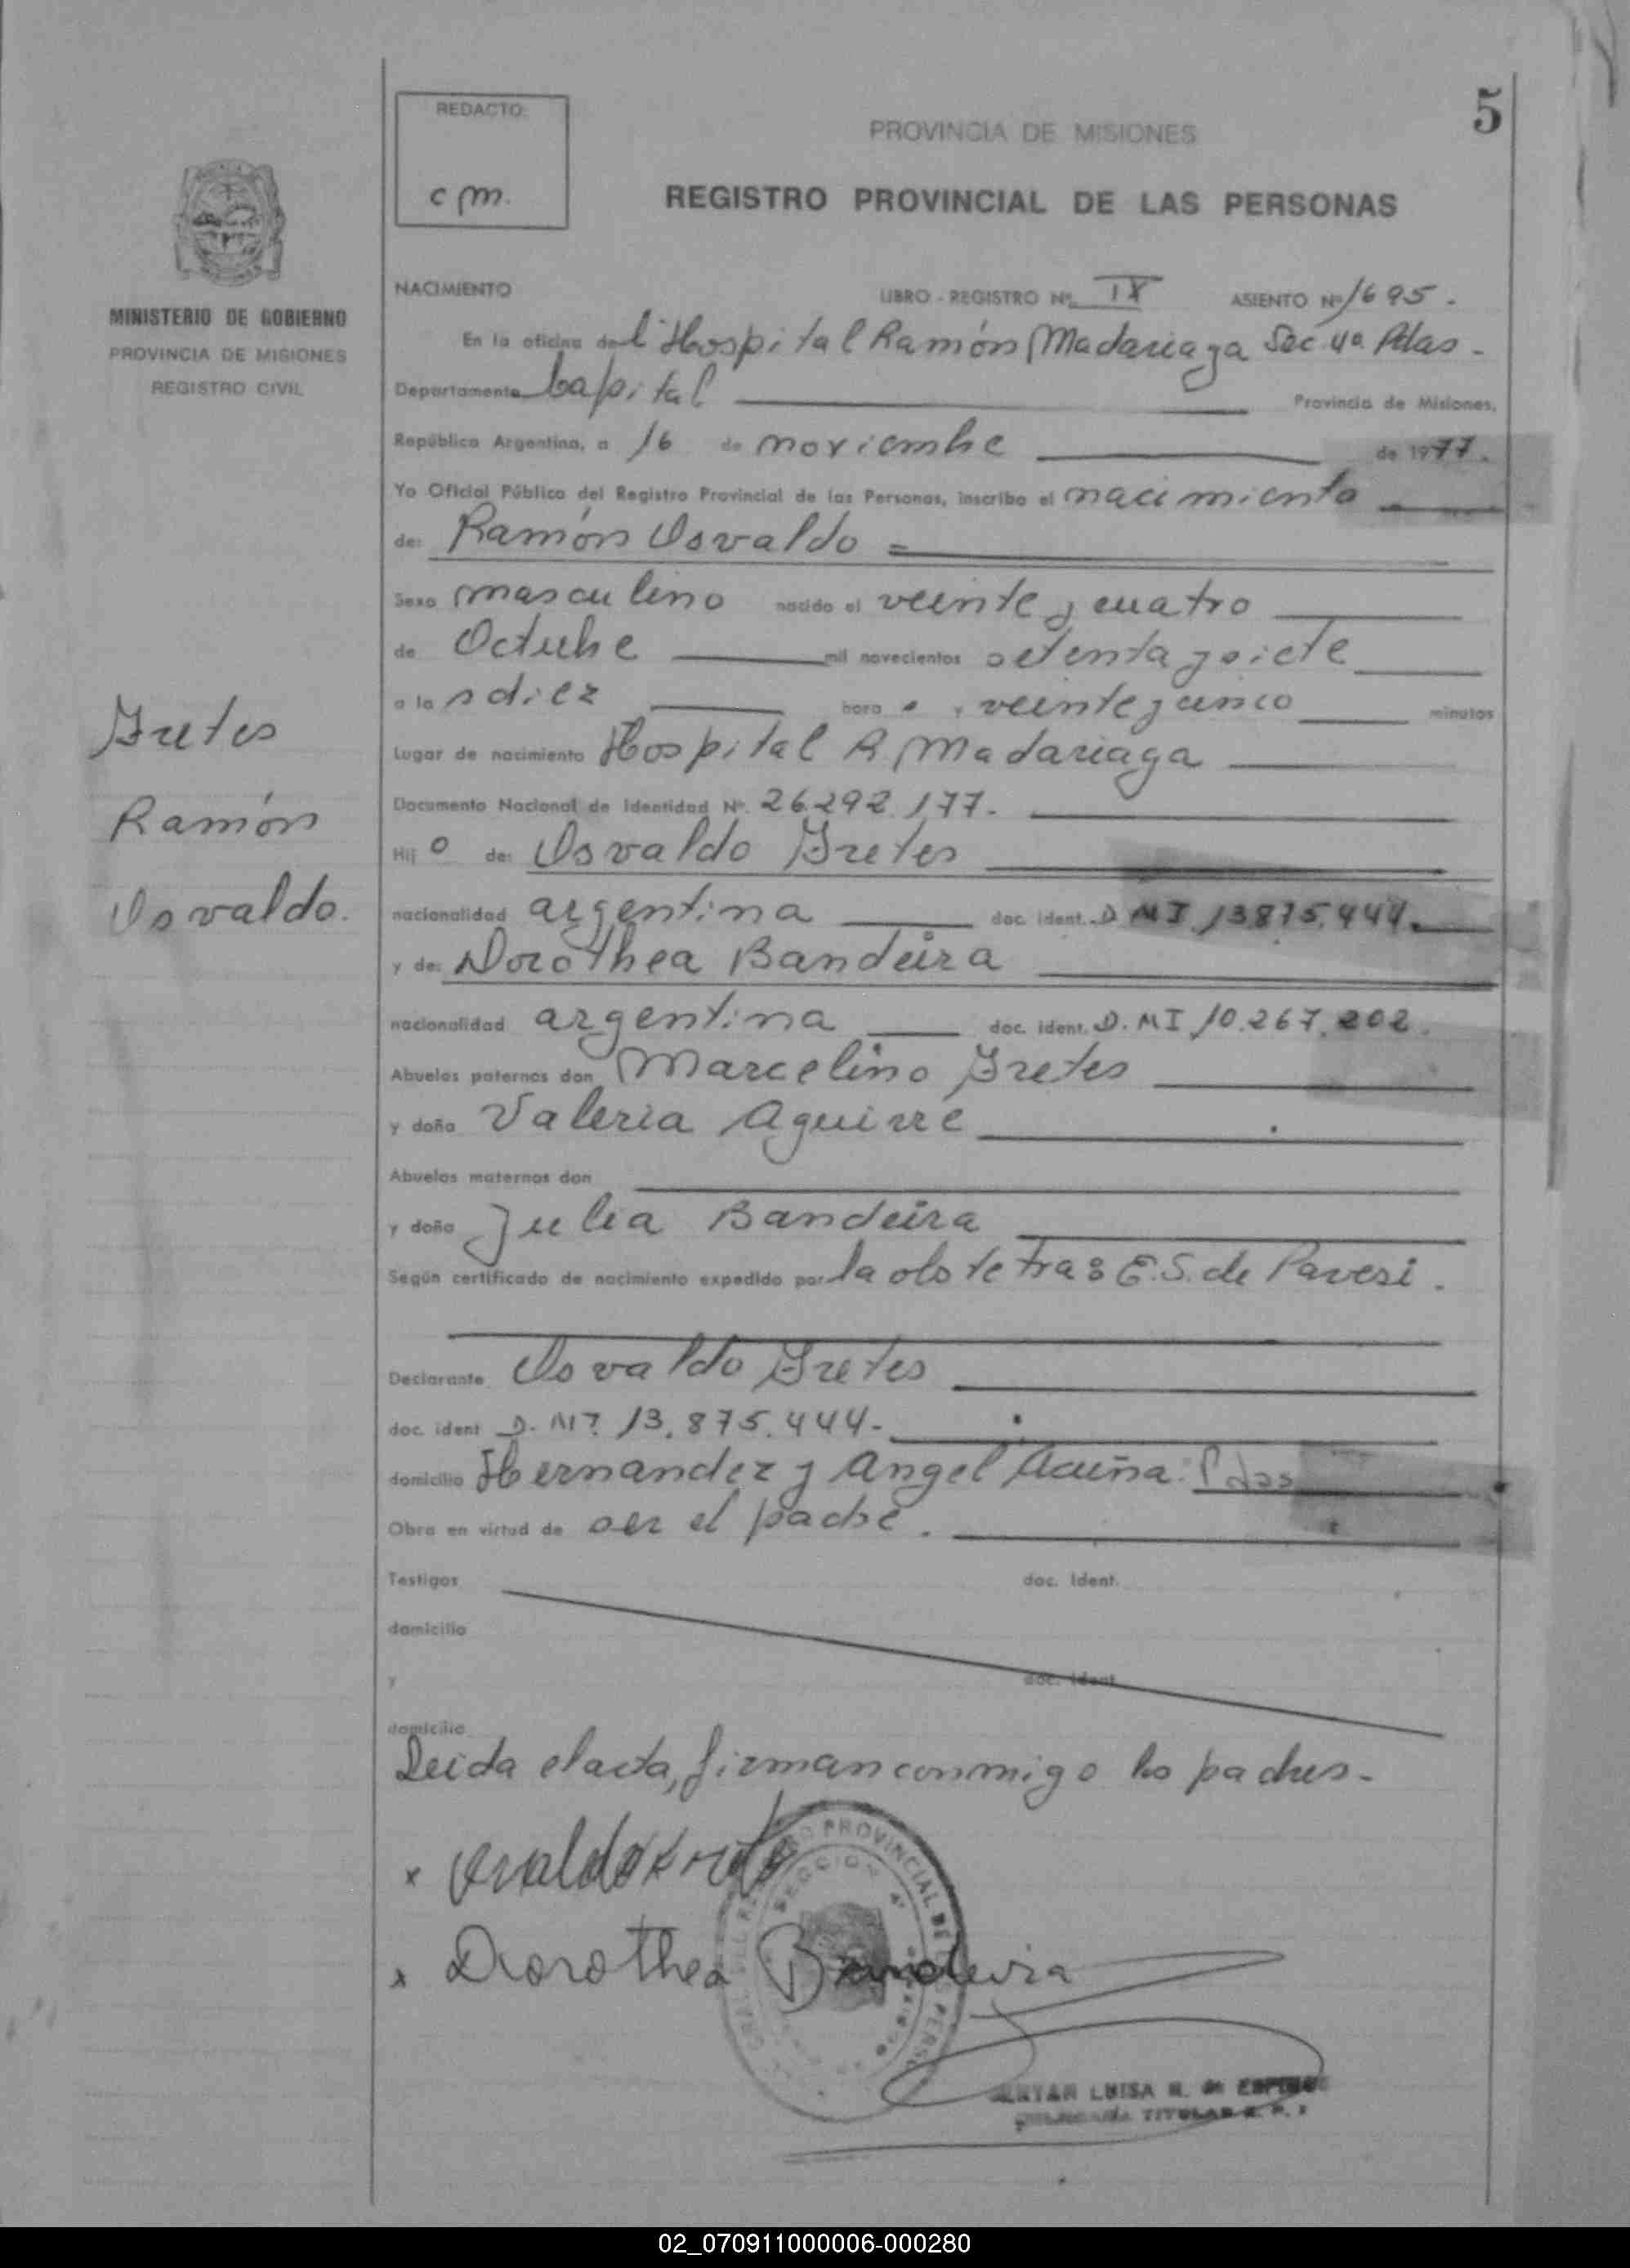 5
REDACTO:
cm.
PROVINCIA DE MISIONES
REGISTRO PROVINCIAL DE LAS PERSONAS
MINISTERIO DE GOBIERNO
PROVINCIA DE MISIONES
REGISTRO CIVIL
NACIMIENTO LIBRO - REGISTRO Nº IX ASIENTO Nº 1695.
En la oficina del Hospital Ramón Madariaga Sec 4a. Pdas -
Departamento Capital Provincia de Misiones,
República Argentina, a 16 de noviembre de 1977.
Yo Oficial Público del Registro Provincial de las Personas, inscribo el nacimiento
de: Ramón Osvaldo =
Sexo masculino nacido el veinte y cuatro
de Octubre mil novecientos setenta y siete
a las diez hora s y veinte y cinco minutos
Lugar de nacimiento Hospital R. Madariaga
Documento Nacional de Identidad Nº. 26.292.177.-
Hijo de: Osvaldo Fretes
nacionalidad argentina doc. ident. D.MI.13.875.444.
y de: Dorothea Bandeira
nacionalidad argentina doc. ident. D.MI 10.267.202.
Abuelos paternos don Marcelino Fretes
y doña Valeria Aguirre
Abuelos maternos don
y doña Julia Bandeira
Según certificado de nacimiento expedido por la obstetra: E.S. de Pavesi.
Declarante Osvaldo Fretes
doc. ident D.MI 13.875.444.-
domicilio Hernandez y Angel Acuña. Pdas
Obra en virtud de ser el padre.
Testigos doc. ident.
domicilio
y doc. ident
domicilio
Leida el acta, firman conmigo los padres.-
Fretes
Ramón
Osvaldo.
x Osvaldo Fretes
x Dorothea Bandeira
PROVINCIAL DE LAS PERSO
SECCION 4ª
LUISA R. de
TITULAR R. P.
02_070911000006-000280